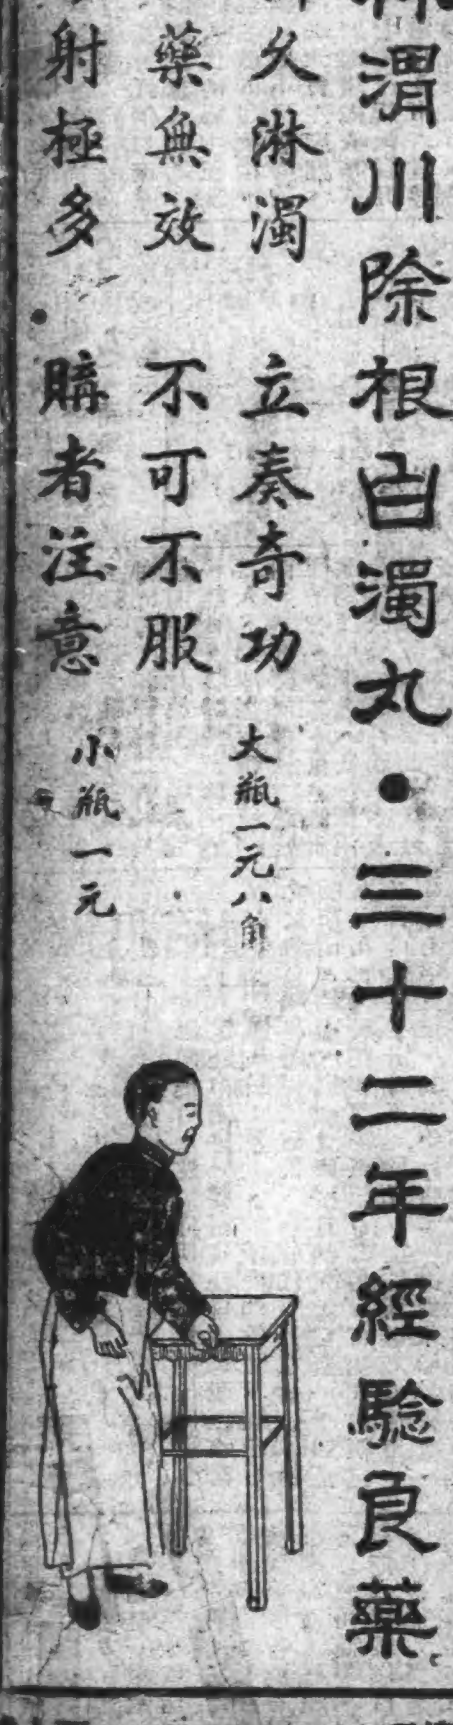 渭川除根白濁丸・三十二年經驗良藥
久淋濁　立奏奇功
大瓶一元八角
藥無效　不可不服
射極多　購者注意
小瓶一元